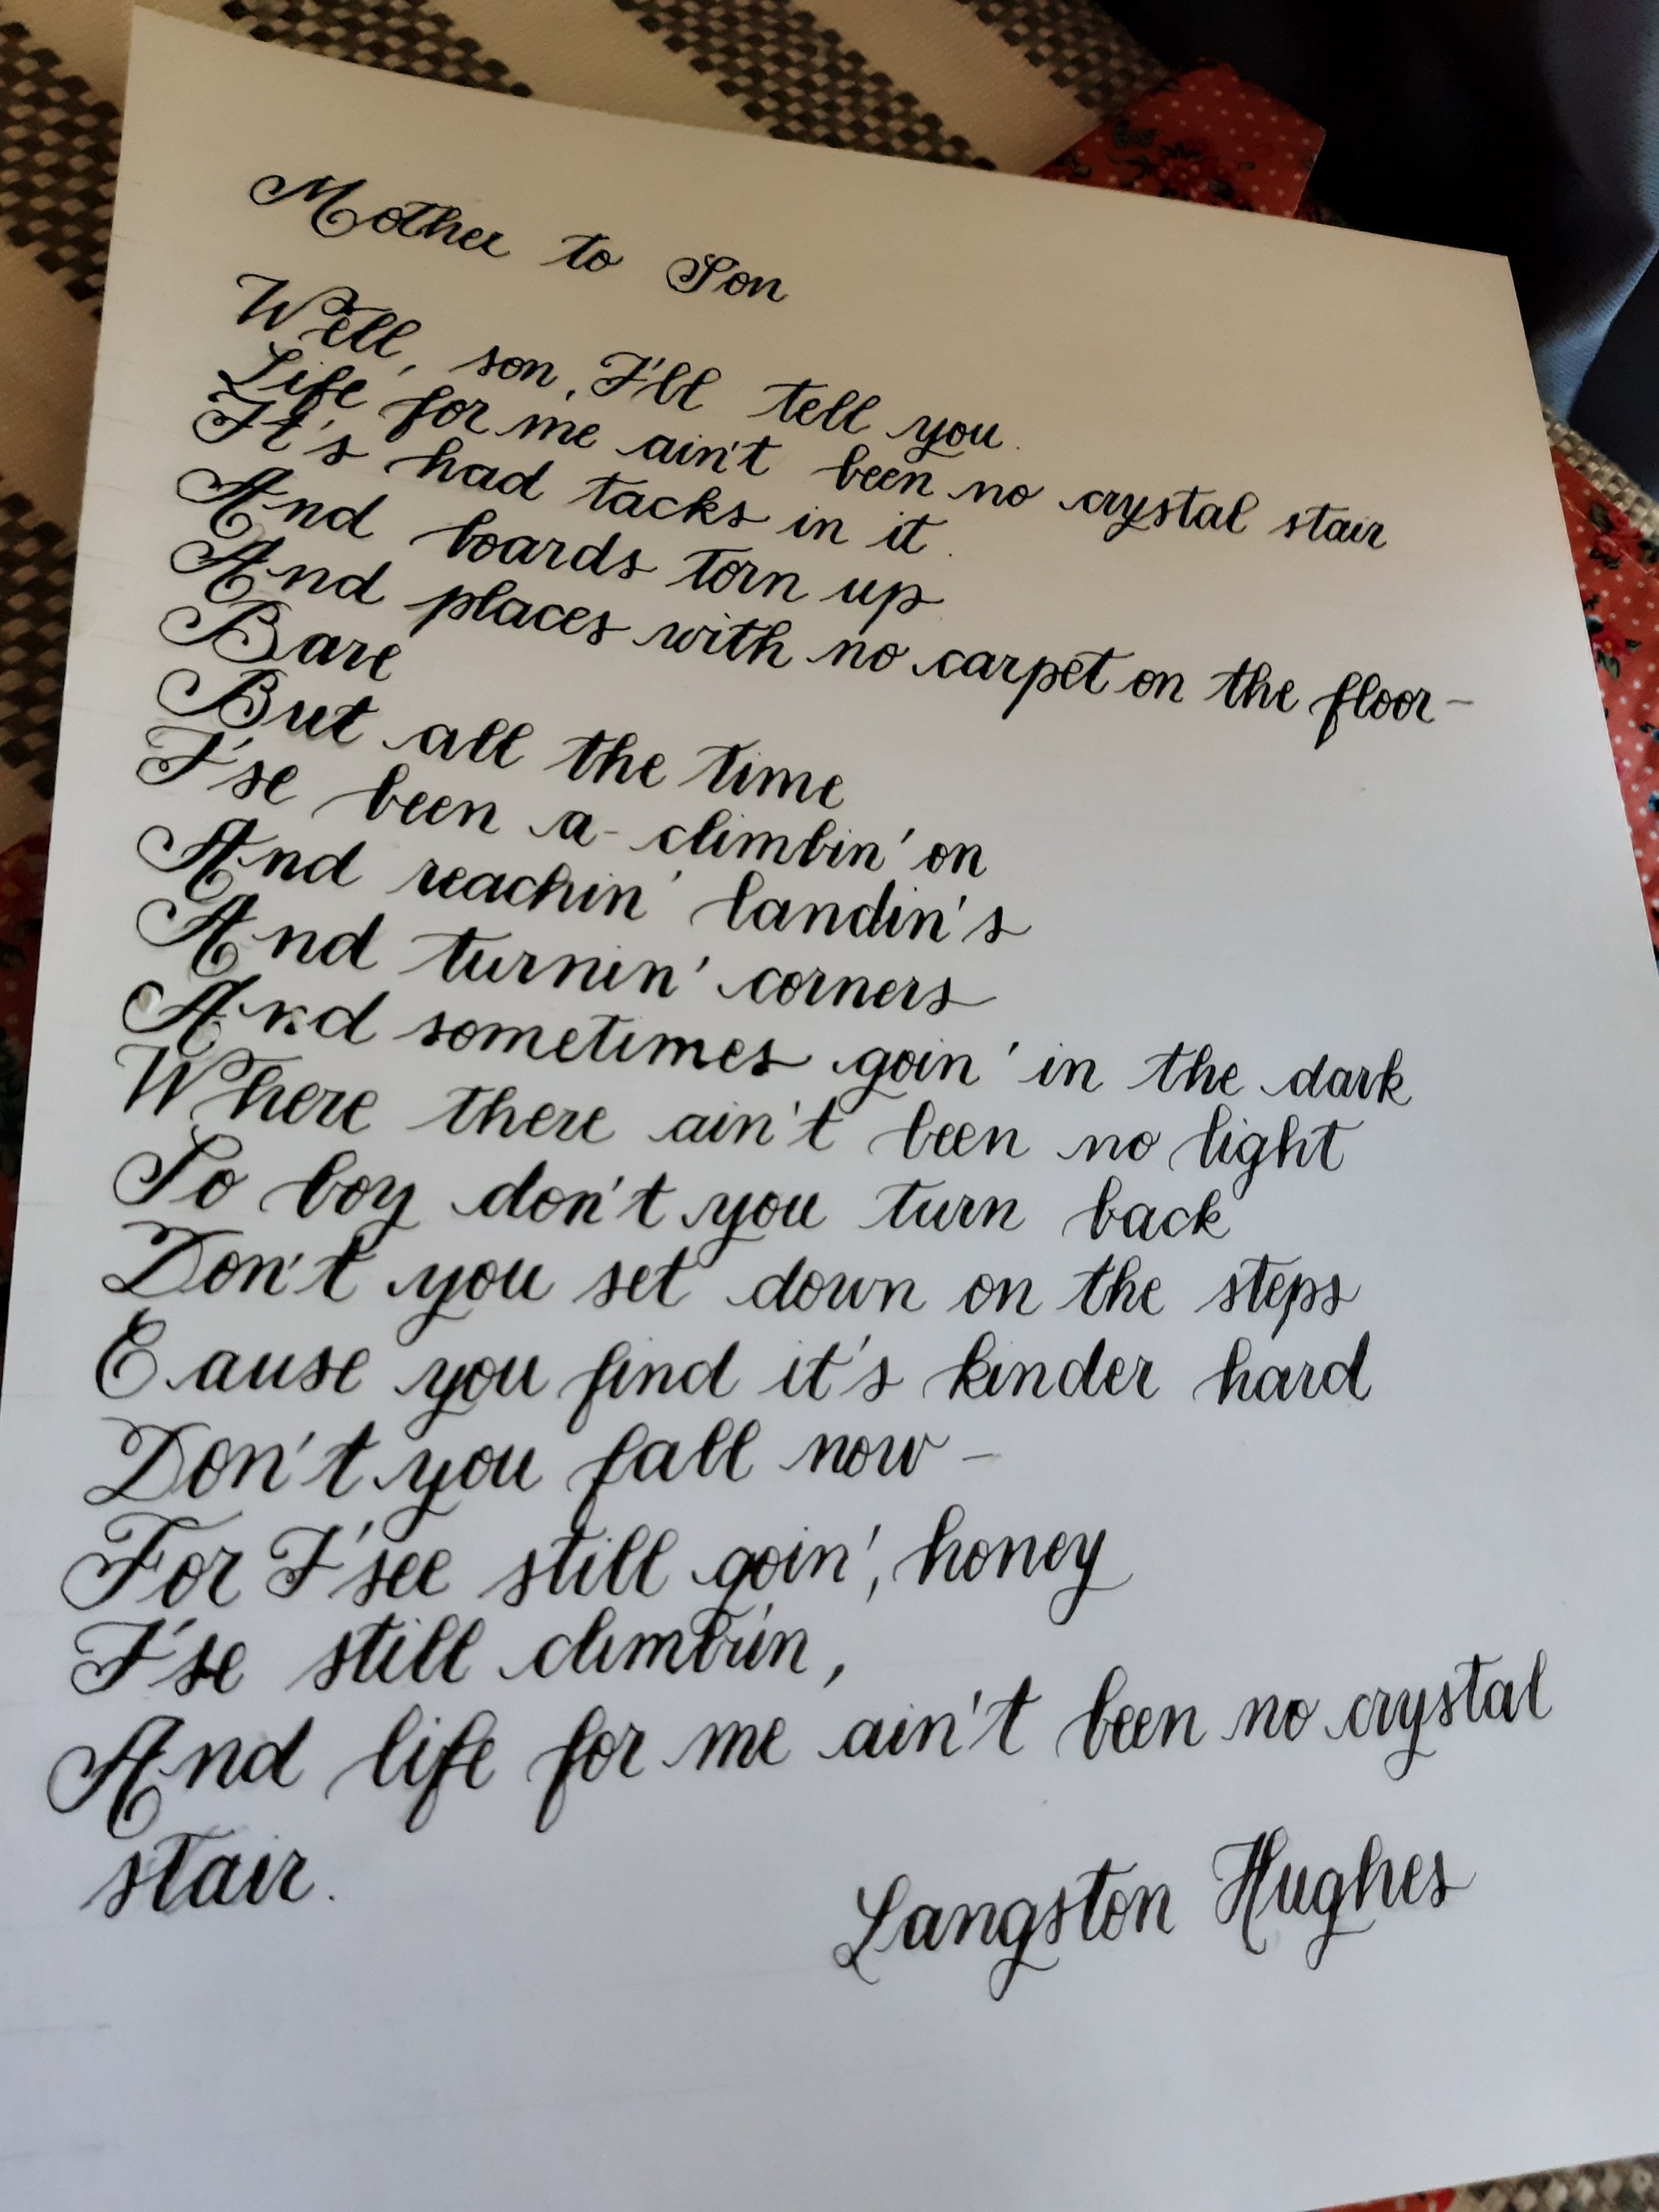 Mother to Son
Well, son, I'll tell you.
Life for me ain't been no crystal stair
It's had tacks in it.
And boards torn up
And places with no carpet on the floor-
Bare
But all the time
I'se been a-climbin' on
And reachin' landin's
And turnin' corners
And sometimes goin' in the dark
Where there ain't been no light
So boy don't you turn back
Don't you set down on the steps
Cause you find it's kinder hard
Don't you fall now-
For I'see still goin', honey
I'se still climbin',
And life for me ain't been no crystal
stair.
Langston Hughes